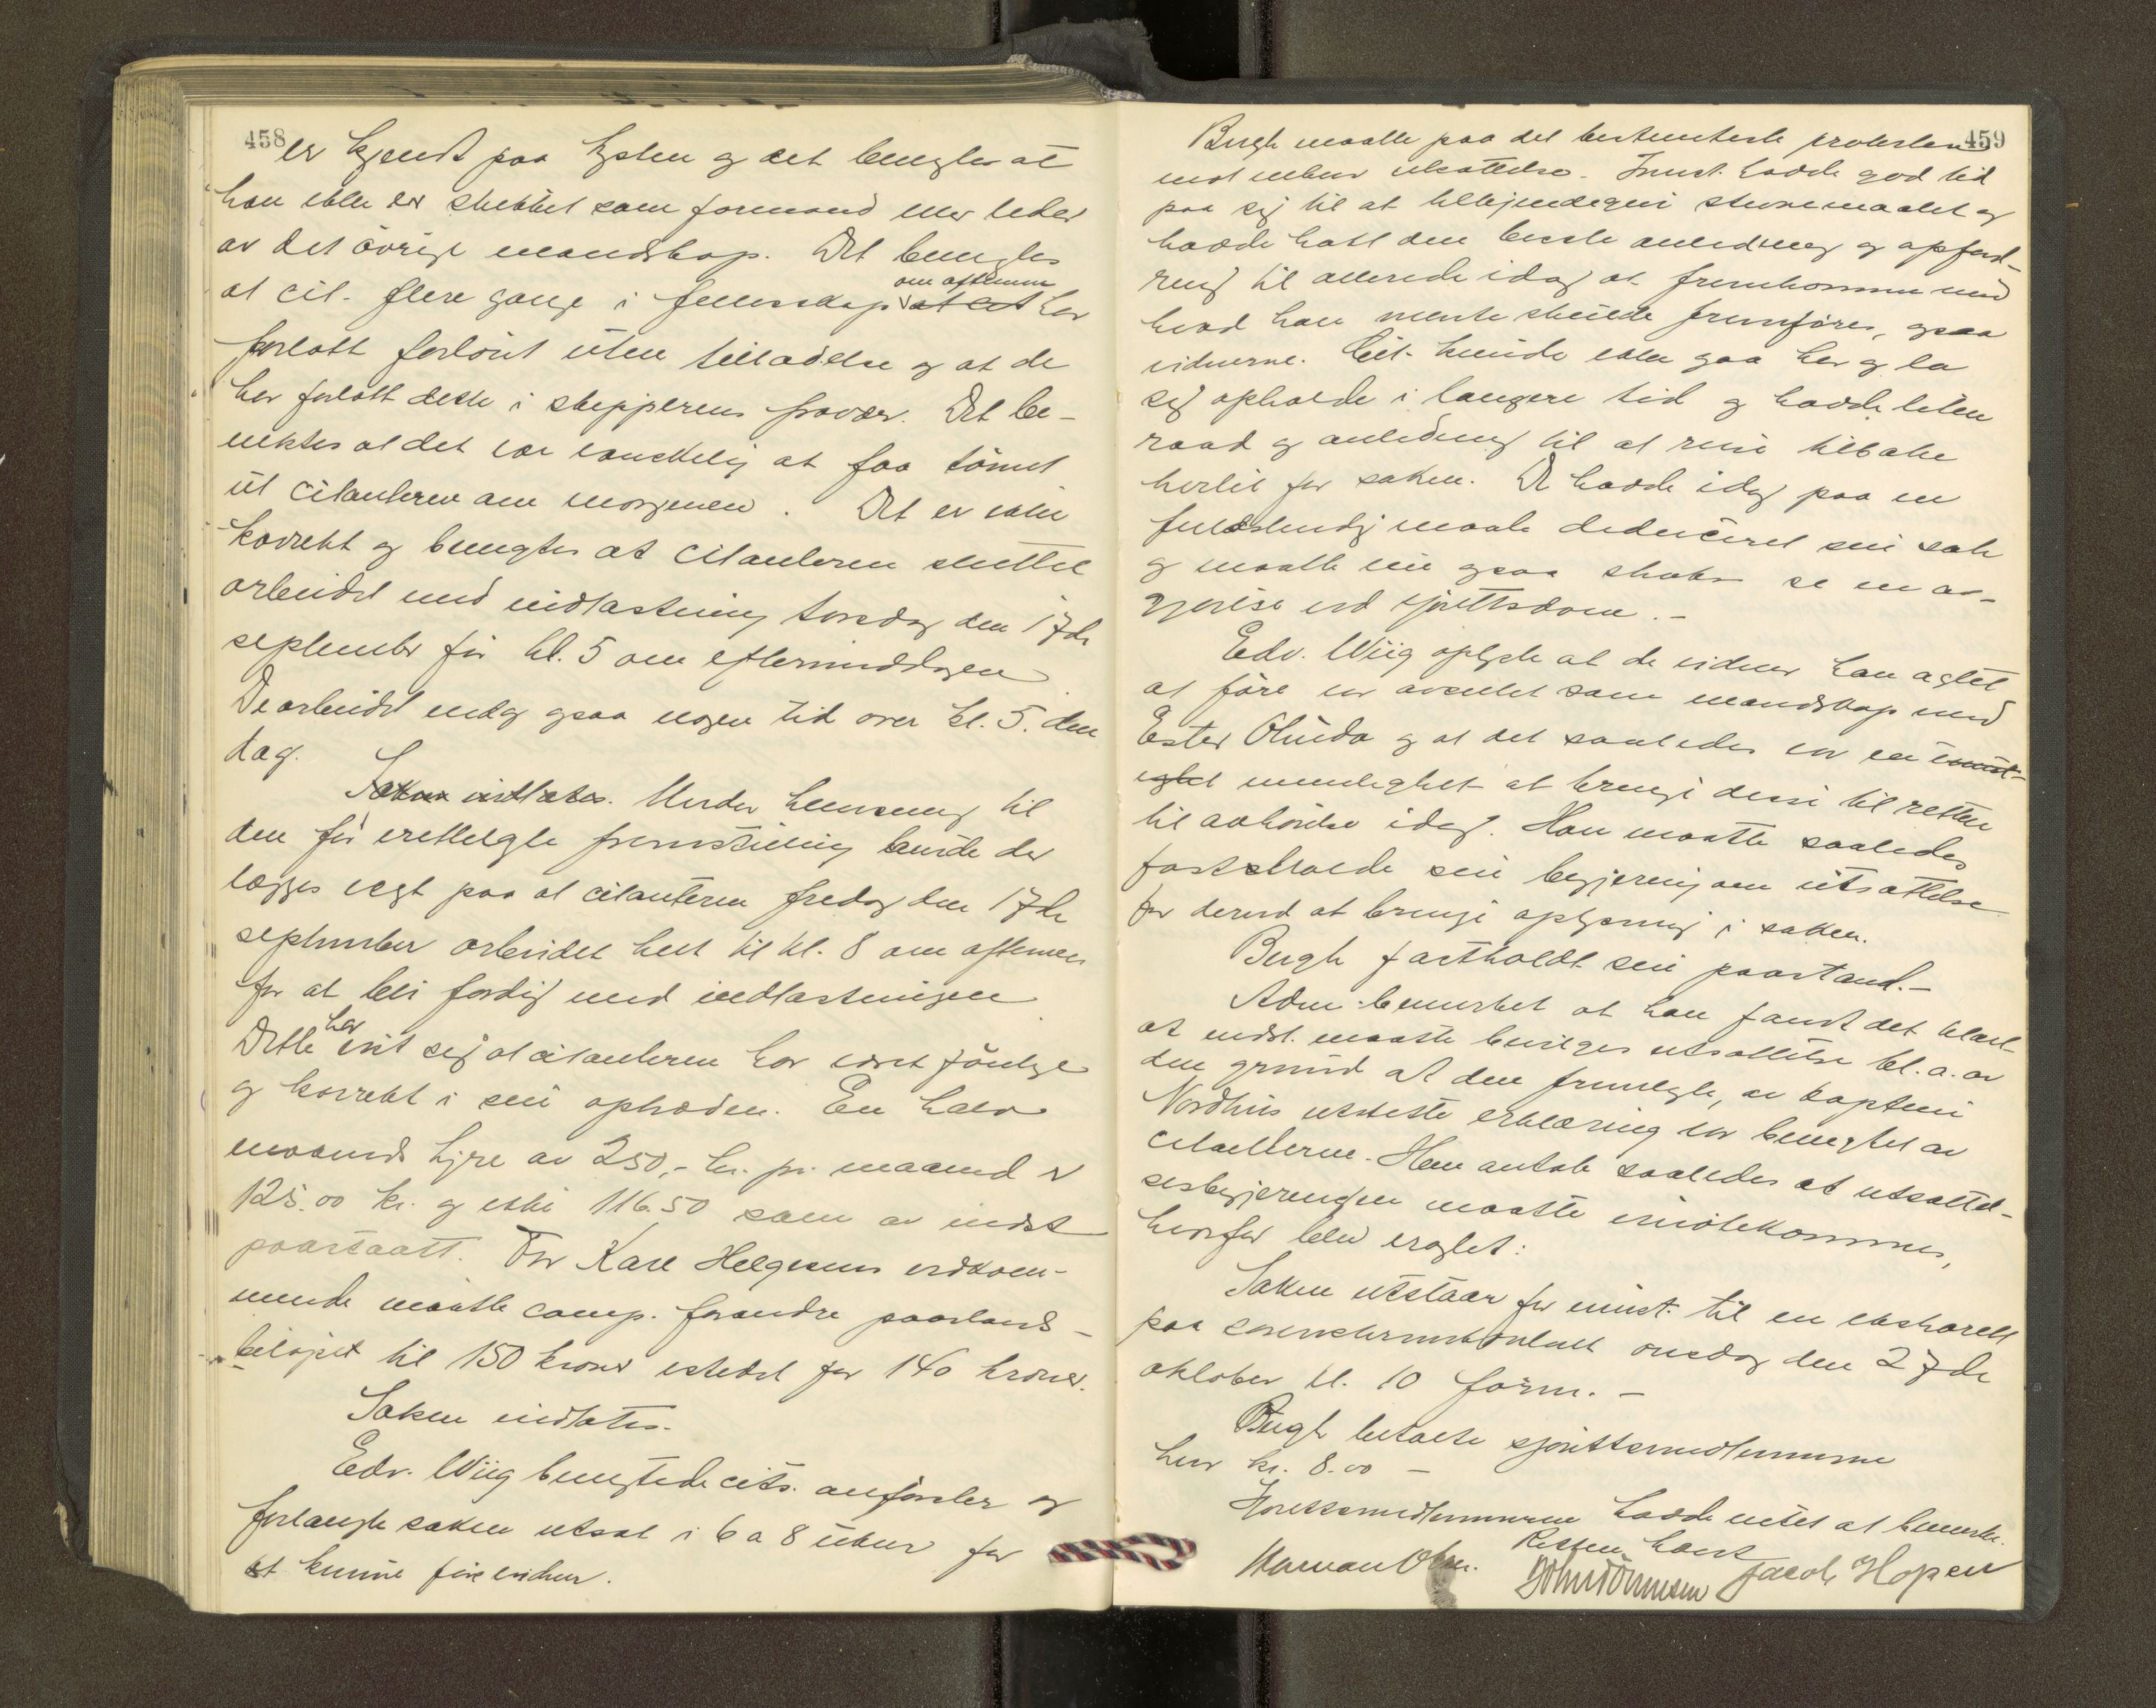 458
er kjendt paa kysten og det benegtes at
han ikke er skikket som formand eller leder
av det övrige mandskap. Det benegtes
at cit. flere gange i fellesskap om aftenen har
forlatt fartöiet uten tilladelse og at de
har forlatt dette i skipperens fravær. Det be-
nektes at det var vanskelig at faa tömt
ut citanterne om morgenen. Det er ikke
korrekt og benegtes at citanterne sluttet
arbeidet med indlastning torsdag den 17de
september før kl. 5 om eftermiddagen
De arbeidet endog ogsaa nogen tid over kl. 5. den
dag.
Saken indlates. Under henvisning til
den før fremstilling burde der
lægges vegt paa at citanterne fredag den 17de
september arbeidet helt til kl. 8 om aftenen
for at bli ferdig med indlastningen
Dette har vist sig at citanterne har været föielige
og korrekt i sin optræden. En halv
maaneds hyre av 250,- kr. pr. maaned er
125.00 kr. og ikke 116.50 som av indst
paastaatt. For Karl Helgesens vedkom-
mende maatte comp. forandre paastands-
belöpet til 150 kroner istedet for 140 kroner.
Saken indlates.
Edv. Wiig benegtede cits. anførsler og
forlangte saken utsat i 6 a 8 uker for
at kunne före vidner.
459
Bugh maatte paa det bestemteste protestere
mot enhver utsættelse. Inust. hadde god tid
paa sig til at tilkjendegi stevnemaalet og
hadde hatt den beste anledning og opford-
ring til allerede idag at fremkomme med
hvad han mente skulde fremföres, ogsaa
vidnerne. Cit. kunde ikke gaa her og la
sig opholde i længere tid og hadde liten
raad og anledning til at reise tilbake
hertil for saken. De hadde idag paa en
fuldstendig maate deduceret sin sak
og maatte nu ogsaa straks se en av-
gjörelse ved sjörettsdom.-
Edv. Wiig oplyste at de vidner han agtet
at före var avseilet som mandskap med
Ester Olinda og at det saaledes var en
umulighet at bringe disse til retten
til avhörelse idag. Han maatte saaledes
fastholde sin begjæring om utsættelse
for derved at bringe oplysning i saken.
Bugh fastholdt sin paastand.-
Adm. bemerket at han fandt det klart
at indst. maatte bevilges utsættelse bl.a. av
den grund at den fremlagte, av kaptein
Nordhus utstedte erklæring var benegtet av
citanterne. Han antok saaledes at utsættel-
sesbegjæringen maatte imötekommes,
hvorfor blev eragtet:
Saken utstaar for inust. til en ekstrarett
paa sorenskriverkontoret onsdag den 27de
oktober kl. 10 form. -
Bugh betalte sjörettsmedlemmene
hver kr. 8.00 -
Sjörettsmedlemmerne hadde intet at bemerke.
Retten hævet
Herman Olsen. John Tönnesen Jacob Hopen